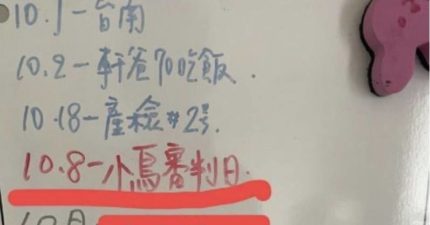 10.1-台南
10.2-軒爸70吃飯.
10.18-產檢#2号.
10.8-小鳥審判日.
10月